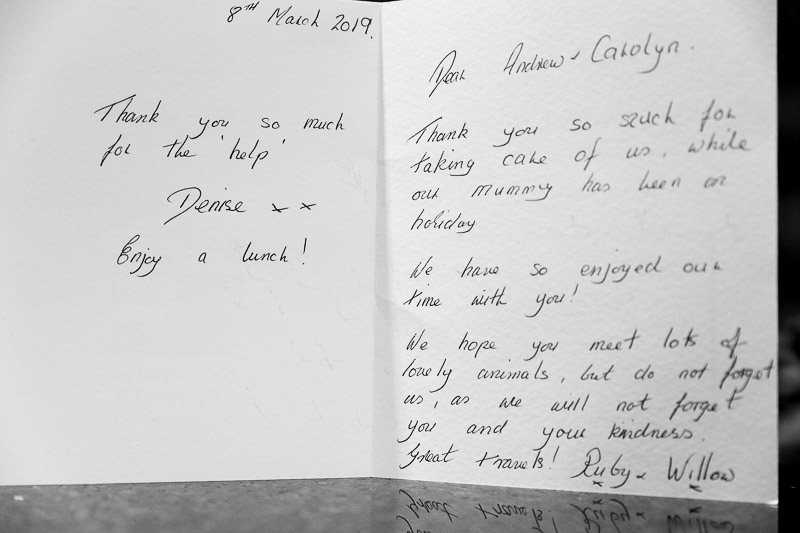 8TH March 2019.
Thank you so much
for the 'help'
Denise x x
Enjoy a lunch!
Dear Andrew + Carolyn.
Thank you so such for
taking care of us, while
our mummy has been on
holiday
We have so enjoyed our
time with you!
We hope you meet lots of
lovely animals, but do not forget
us, as we will not forget
you and your kindness.
Great travels! Ruby x Willow
x x